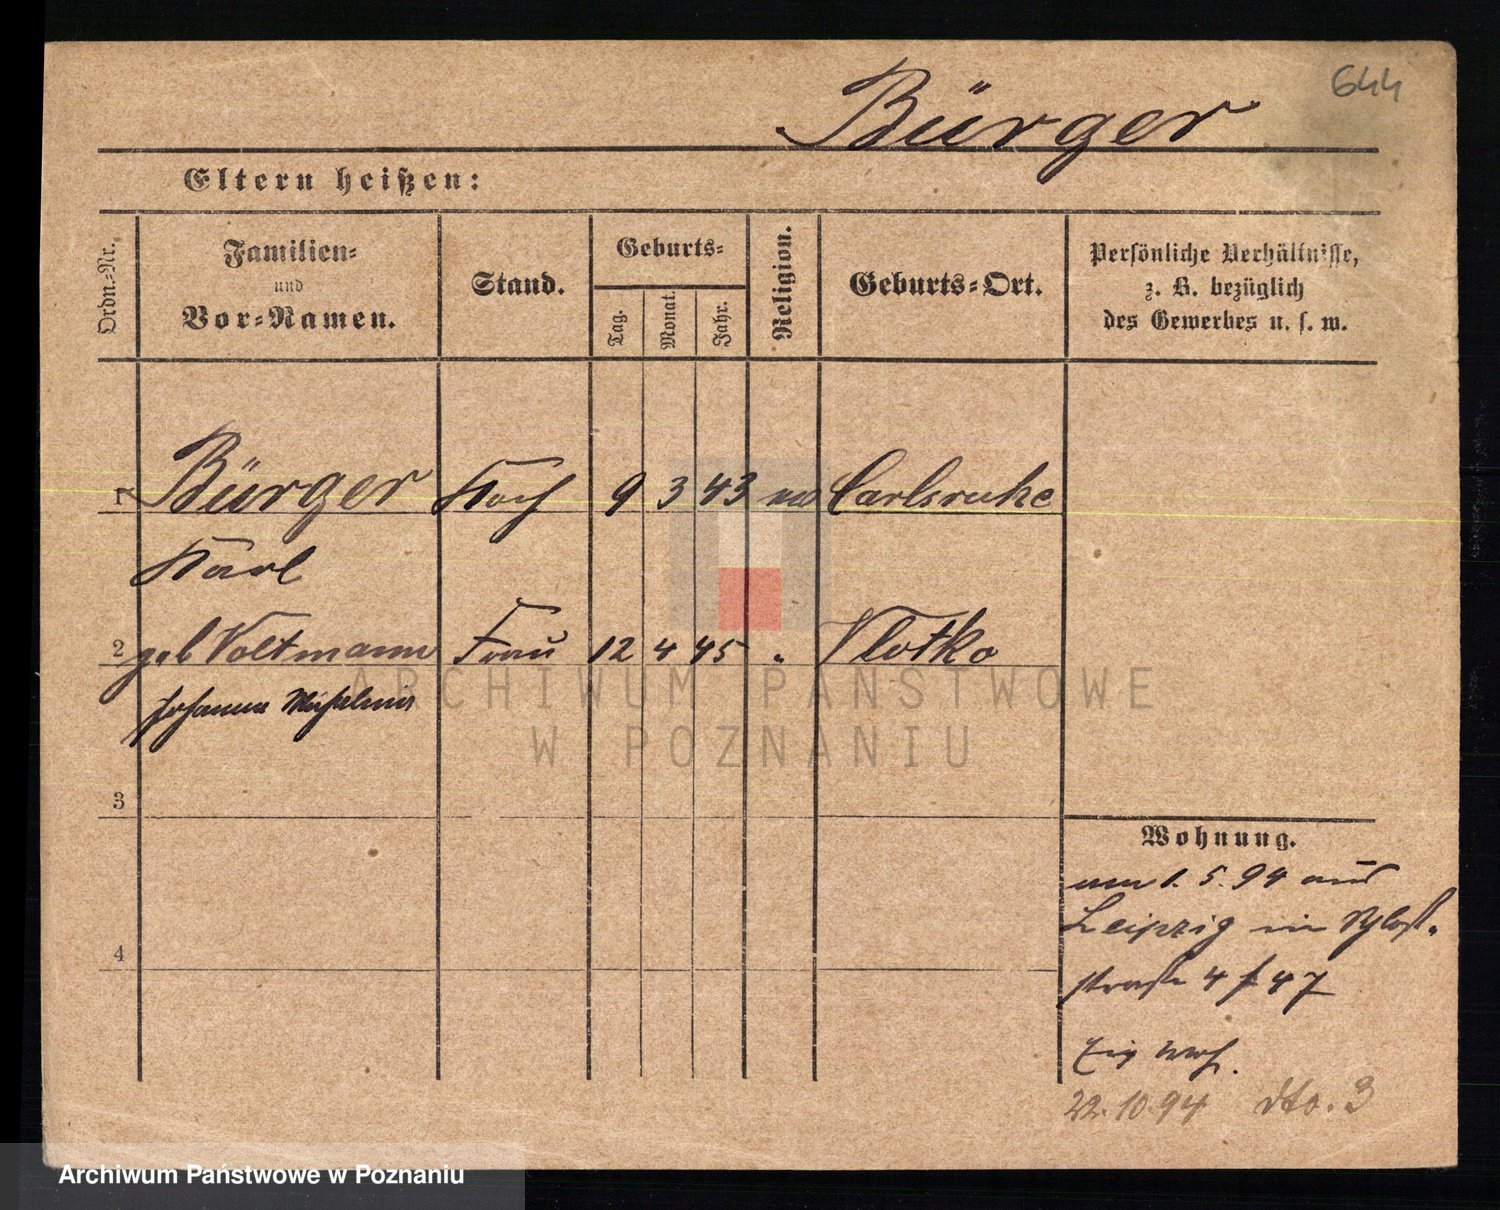 644
Bürger
Eltern heißen:
Ordn.-Nr.
Familien- und Vor-Namen.
Stand.
Geburts-
Tag.
Monat.
Jahr.
Religion.
Geburts-Ort.
Persönliche Verhältnisse,
z. B. bezüglich
des Gewerbes u. s. w.
1 Bürger Koch 9 3 43 Carlsruhe
Karl
2 geb Voltmann Frau 12 4 45 " Vlotho
Johanna Wilhelmine
3
4
Wohnung.
am 1. 5. 94 aus
Leipzig in
straße 4 f 47
Eig Woh.
22.10.94 dto. 3
ARCHIWUM PAŃSTWOWE
W POZNANIU
Archiwum Państwowe w Poznaniu